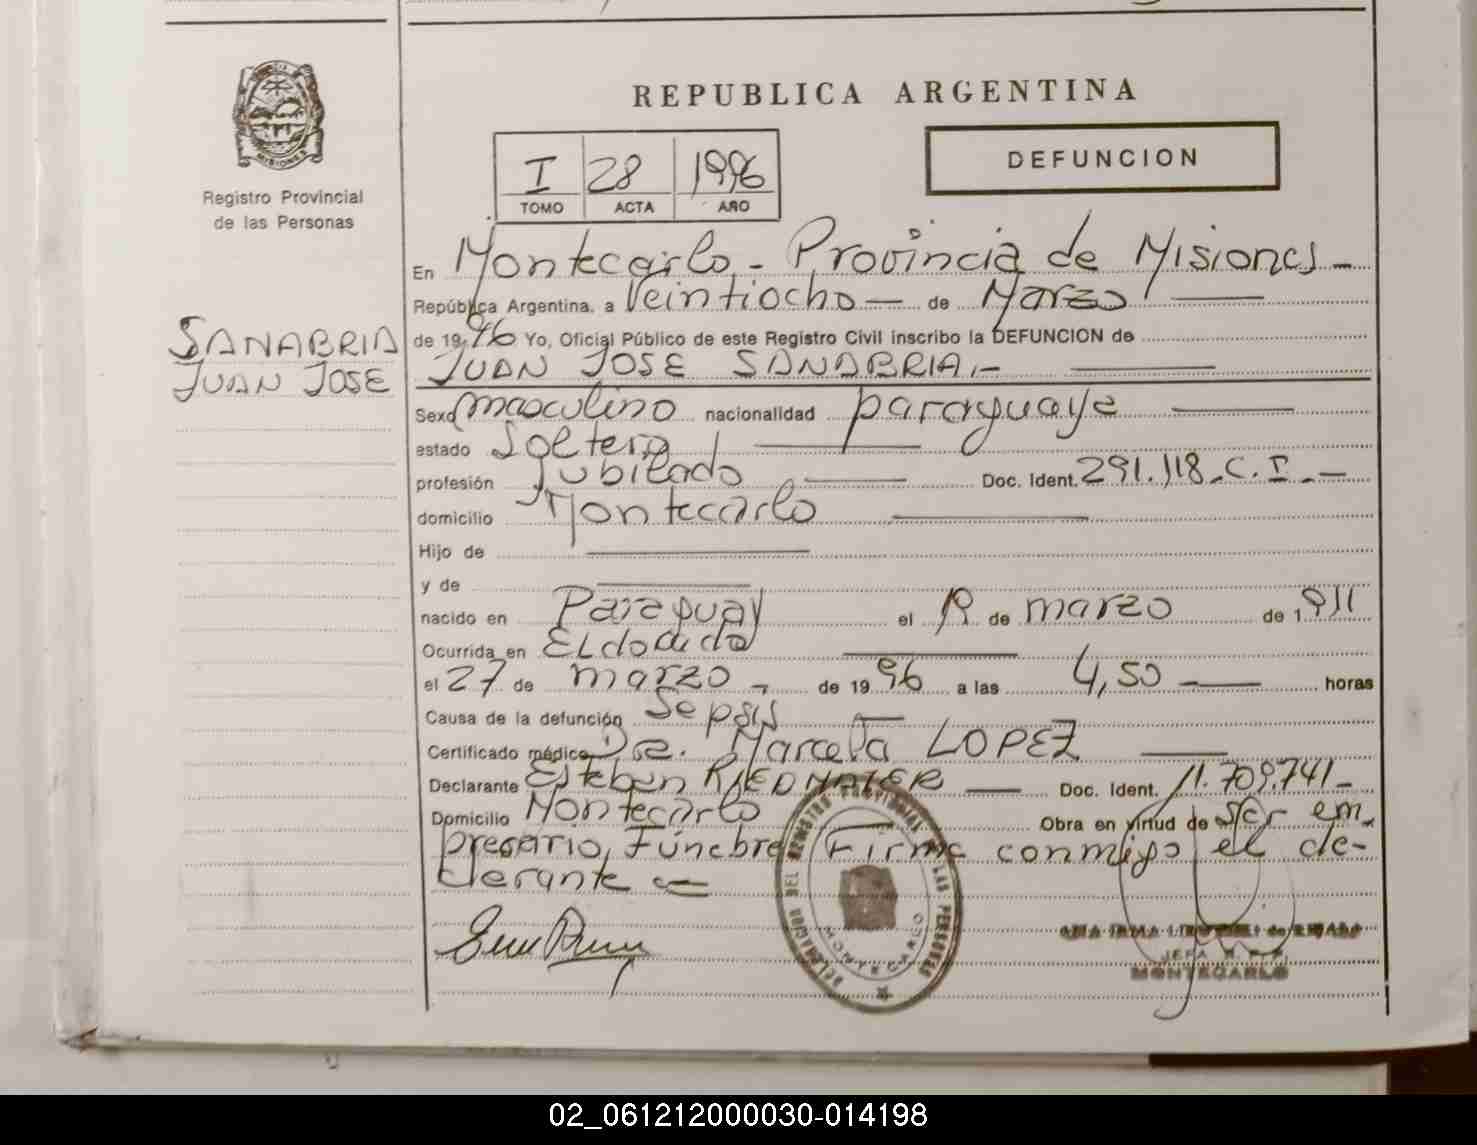 REPUBLICA ARGENTINA
MISIONES
Registro Provincial
de las Personas
I 28 1996
TOMO ACTA AÑO
DEFUNCION
En Montecarlo - Provincia de Misiones -
República Argentina, a Veintiocho — de Marzo —
SANABRIA
JUAN JOSE
de 1996 Yo, Oficial Público de este Registro Civil inscribo la DEFUNCION de
JUAN JOSE SANABRIA.- —
Sexo masculino nacionalidad paraguaya —
estado Soltero —
profesión Jubilado — Doc. Ident. 291.118.C.I. —
domicilio Montecarlo —
Hijo de —
y de —
nacido en Paraguay el 19 de marzo de 1911
Ocurrida en Eldorado —
el 27 de marzo - de 1996 a las 4,50 — horas
Causa de la defunción Sepsis —
Certificado médico Dra. Marcela LOPEZ —
Declarante Esteban — Doc. Ident. 11.709.741-
Domicilio Montecarlo Obra en virtud de Ser em-
presario Fúnebre Firma conmigo el de-
clarante —
DELEGACION DEL REGISTRO PROVINCIAL DE LAS PERSONAS
MONTECARLO
JEFA
MONTECARLO
02_061212000030-014198